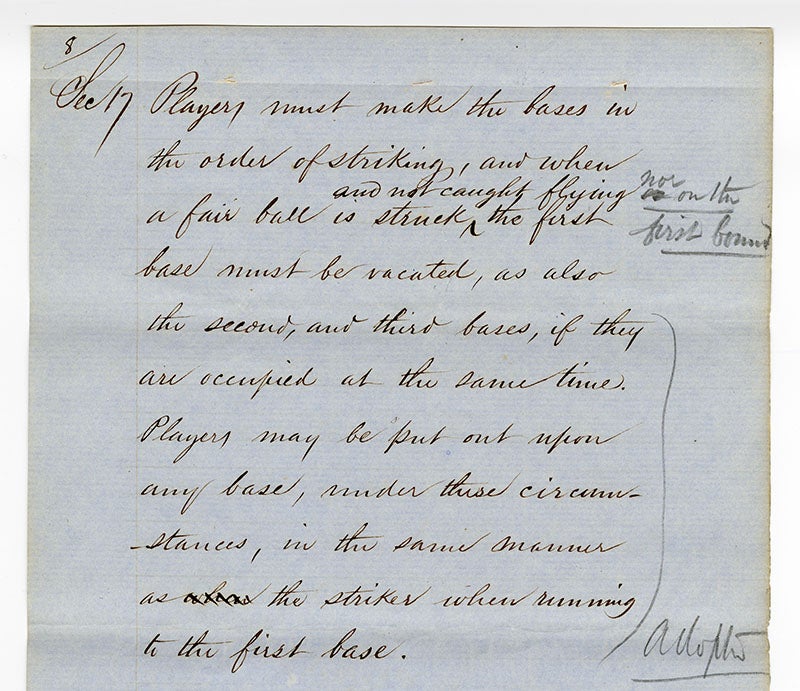 8
Sec 17 Players must make the bases in
the order of striking, and when
and not caught flying nor on the
a fair ball is struck, the first
first bound
base must be vacated, as also
the second, and third bases, if they
are occupied at the same time.
Players may be put out upon
any base, under these circum-
-stances, in the same manner
as when the striker when running
to the first base.
Adopted